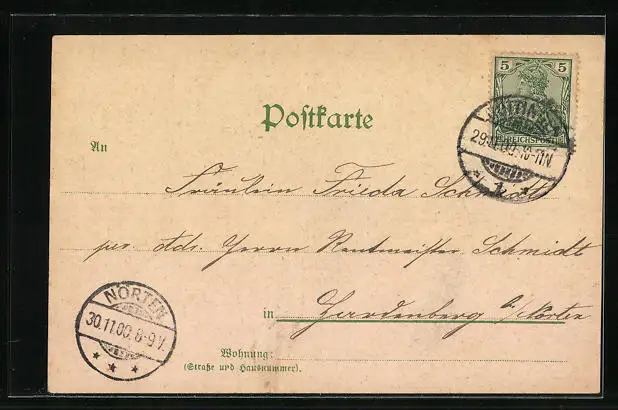 5 5
REICHSPOST
29.11.00.10-11N
Postkarte
An
Fräulein Frieda Schmidt
per. Adr. Herrn Rentmeister Schmidt
in Hardenberg b/Nörten
NÖRTEN
30.11.00.8-9V.
Wohnung:
(Straße und Hausnummer).